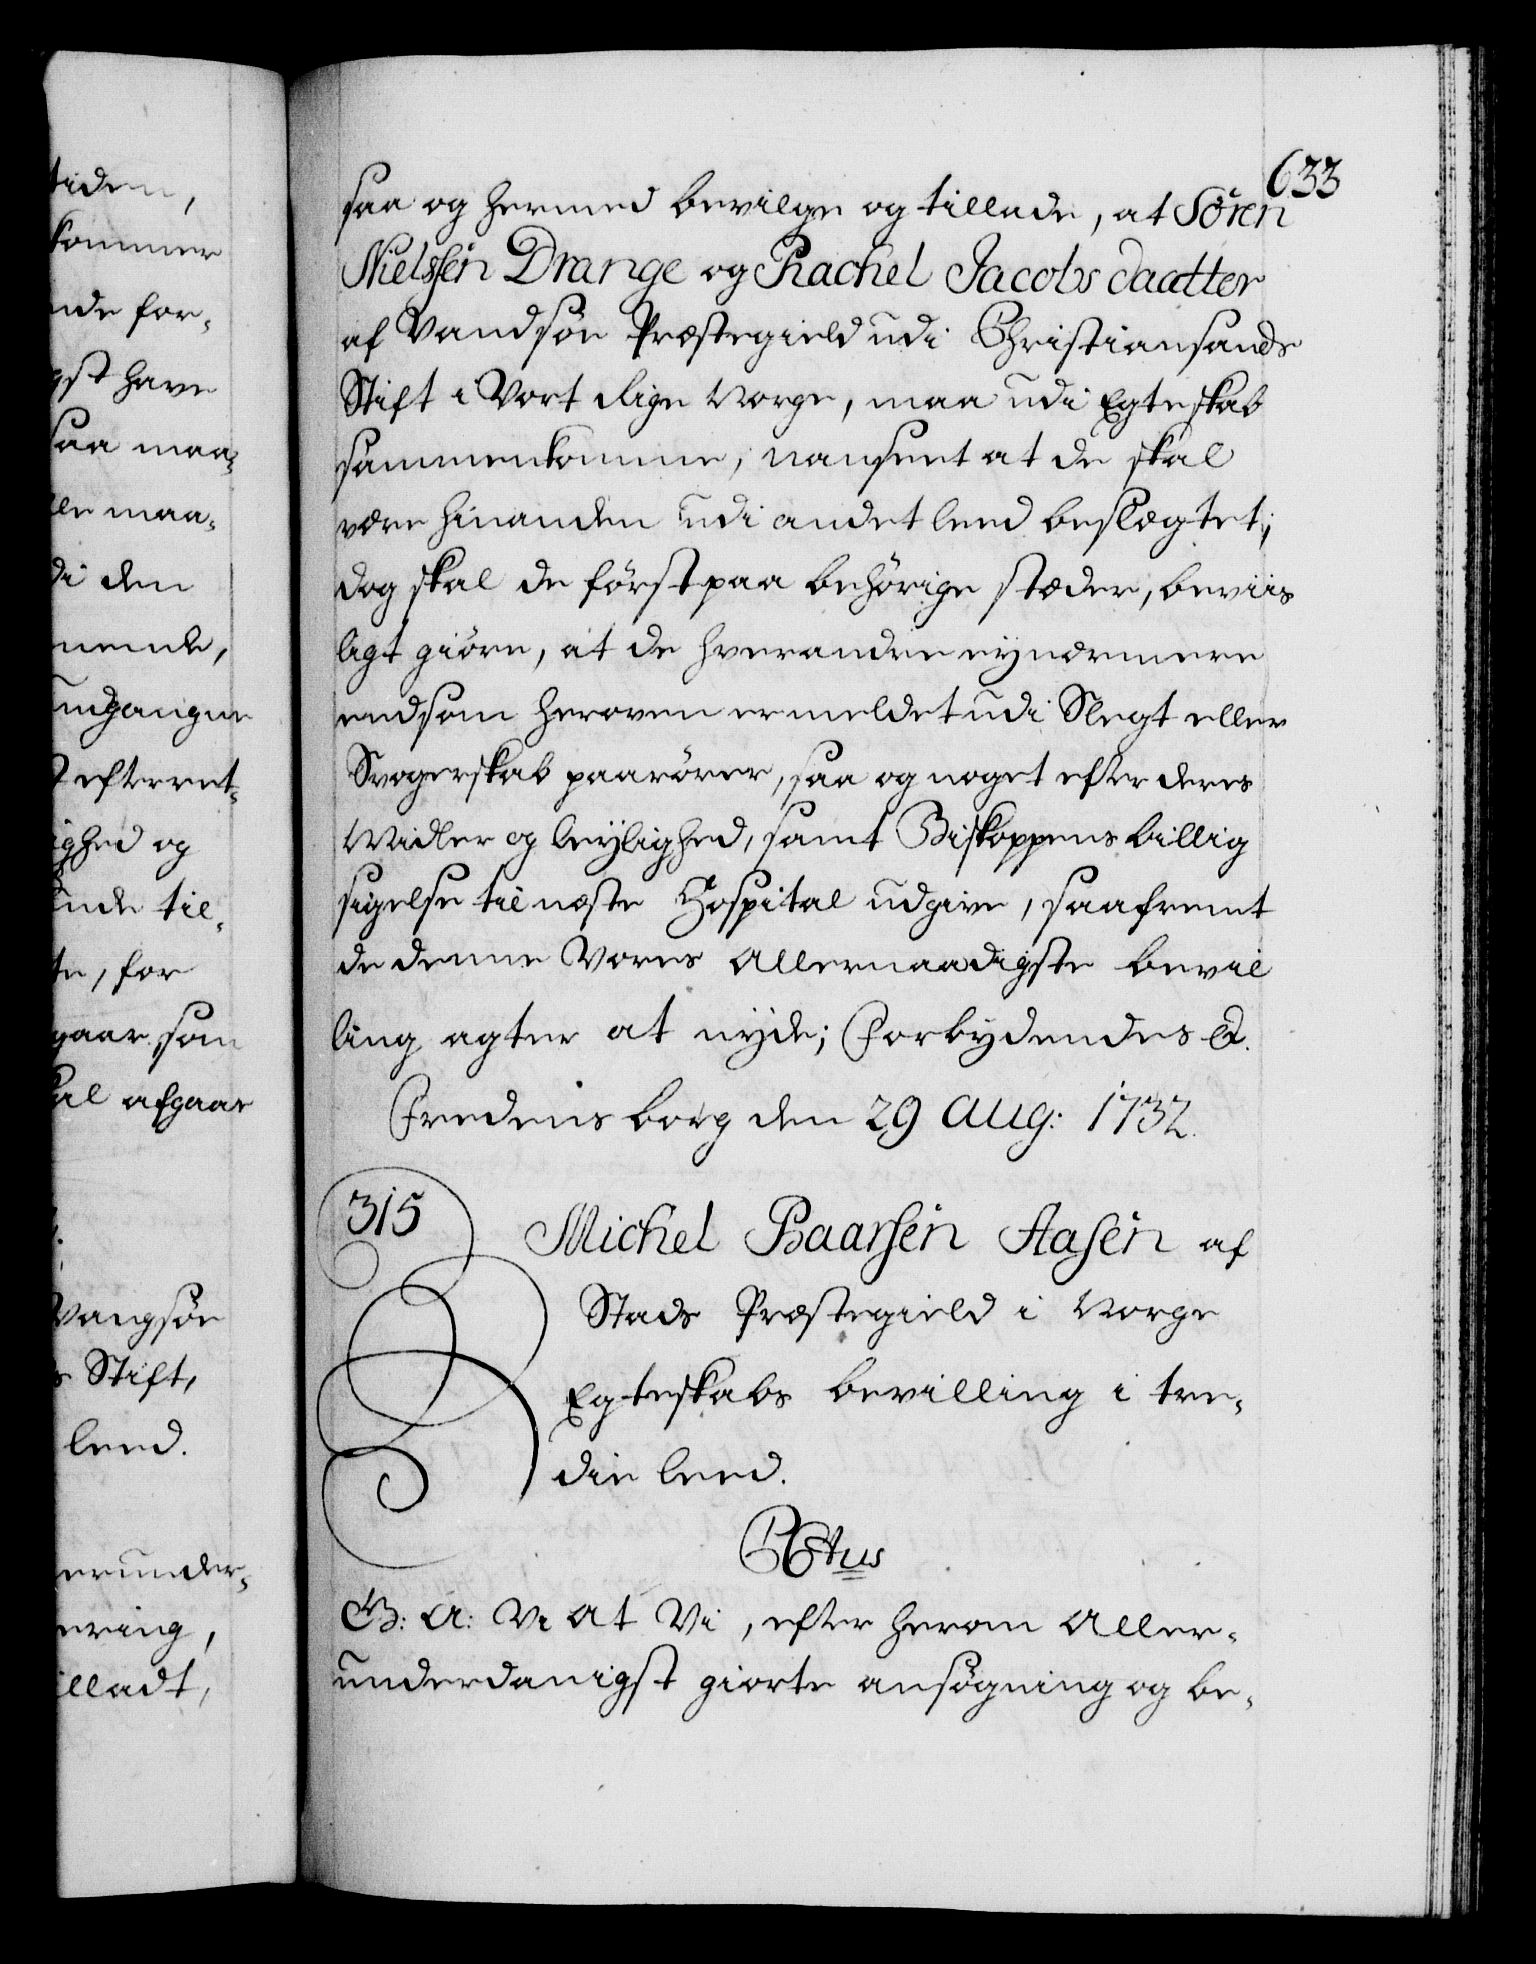 633
saa og hermed bevilge og tillade, at Sören
Nielssen Drange og Rachel Jacobs daatter
af Vandsöe Præstegield udi Christiansands
Stift i Vort Rige Norge, maa udi Egteskab
sammenkomme, uanseet at de skal
være hinanden udi andet leed beslægtet;
dog skal de först paa behörige stæder, beviis
ligt giöre, at de hverandre ey nærmere
end som heroven er meldet udi Slegt eller
Svogerskab paarörer, saa og noget efter deres
Midler og leylighed, samt Biskoppens billig
sigelse til næste Hospital udgive, saafremt
de denne Vores allernaadigste bevil
ling agter at nyde; Forbydendes &.
Fredensborg den 29 Aug: 1732.
315
Michel Baarsen Aasen af
Stads Præstegield i Norge
Egteskabs bevilling i tre-
die leed.
G: A: Vi at Vi, efter herom aller-
underdanigst giorte ansögning og be-
tiden,
kommer
nde for-
gst have
saa maa-
lle maa-
di den
mende,
undgangne
efterret-
ighed og
ende til-
te, for
gaar som
kal afgaar
Vangsöe
s Stift,
leed.
erunder-
ering,
illadt,